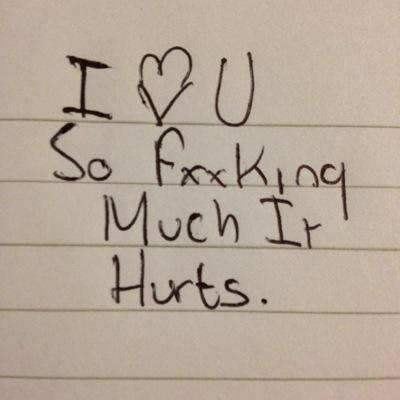 I ♡ U
So Fxxking
Much It
Hurts.